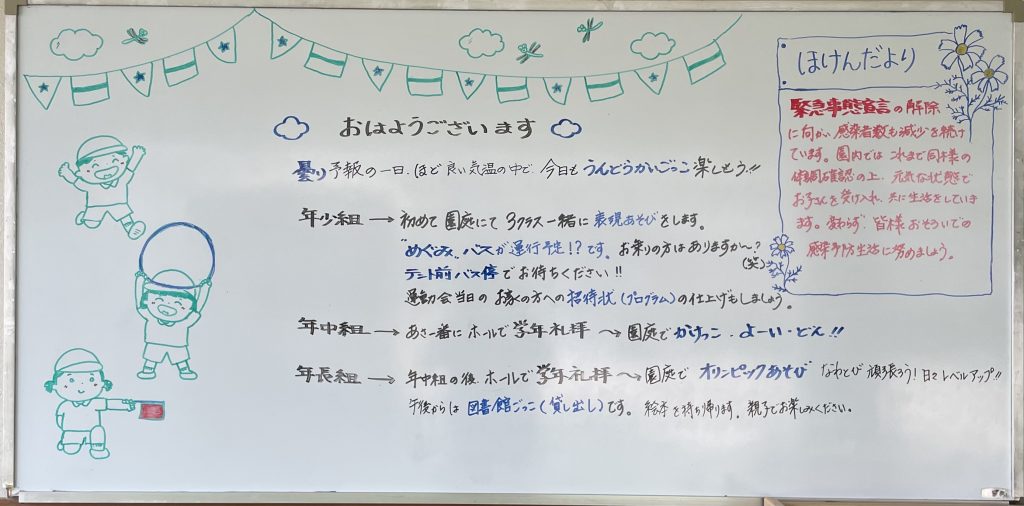 おはようございます
曇り予報の一日、ほど良い気温の中で、今日も うんどうかいごっこ 楽しもう!!
年少組 → 初めて 園庭にて 3クラス一緒に 表現あそびをします。
"めぐみ" バスが運行予定!?です。お乗りの方はありますか〜?
(笑)
テント前バス停でお待ちください!!
運動会当日の お家の方への招待状(プログラム)の仕上げもしましょう。
年中組 → あさ一番に ホールで 学年礼拝 → 園庭で かけっこ・よーい・どん!!
年長組 → 年中組の後、ホールで学年礼拝 → 園庭で オリンピックあそび なわとび 頑張ろう!日々レベルアップ!!
午後からは 図書館ごっこ(貸し出し)です。絵本を持ち帰ります。親子でお楽しみください。
ほけんだより
緊急事態宣言の解除
に向かい感染者数も減少を続け
ています。園内では これまで同様の
体調確認の上、元気な状態で
お子さんを受け入れ、共に生活をしていき
ます。変わらず 皆様おそろいでの
感染予防生活に努めましょう。